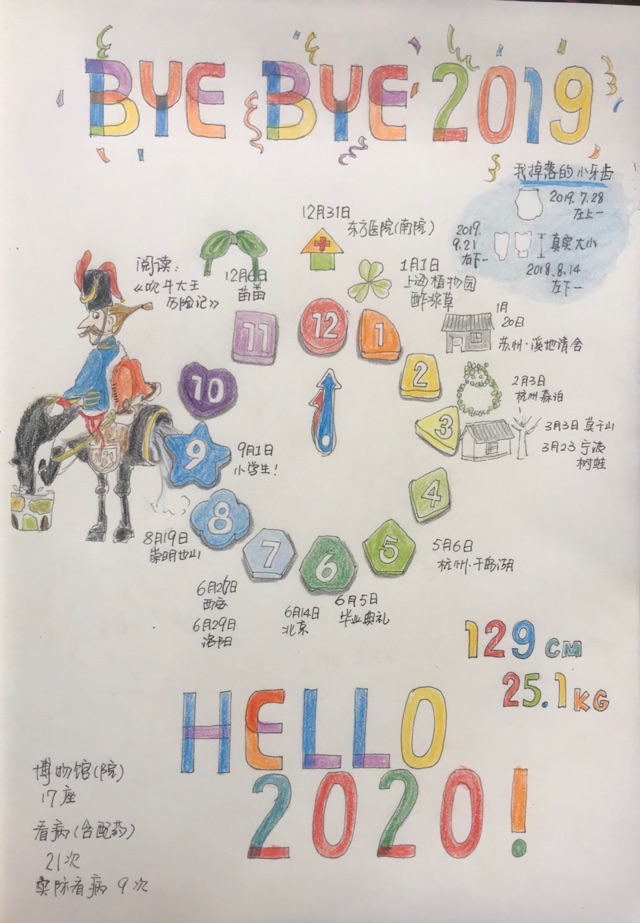 BYE BYE 2019
我掉落的小牙齿
2019.7.28
左上一
2019.
9.21
右下一
真实大小
2018.8.14
左下一
12月31日
东方医院(南院)
1月1日
上海植物园
酢浆草
1月
20日
苏州·溪地清舍
2月3日
杭州森泊
3月3日 莫干山
3月23 宁波
树蛙
5月6日
杭州·千岛湖
6月5日
毕业典礼
6月14日
北京
6月26日
西安
6月29日
洛阳
8月19日
崇明
9月1日
小学生!
12月6日
苗苗
阅读:
《吹牛大王
历险记》
12
1
2
3
4
5
6
7
8
9
10
11
129 CM
25.1 KG
HELLO
2020!
博物馆(院)
17座
看病(含配药)
21次
实际看病 9次